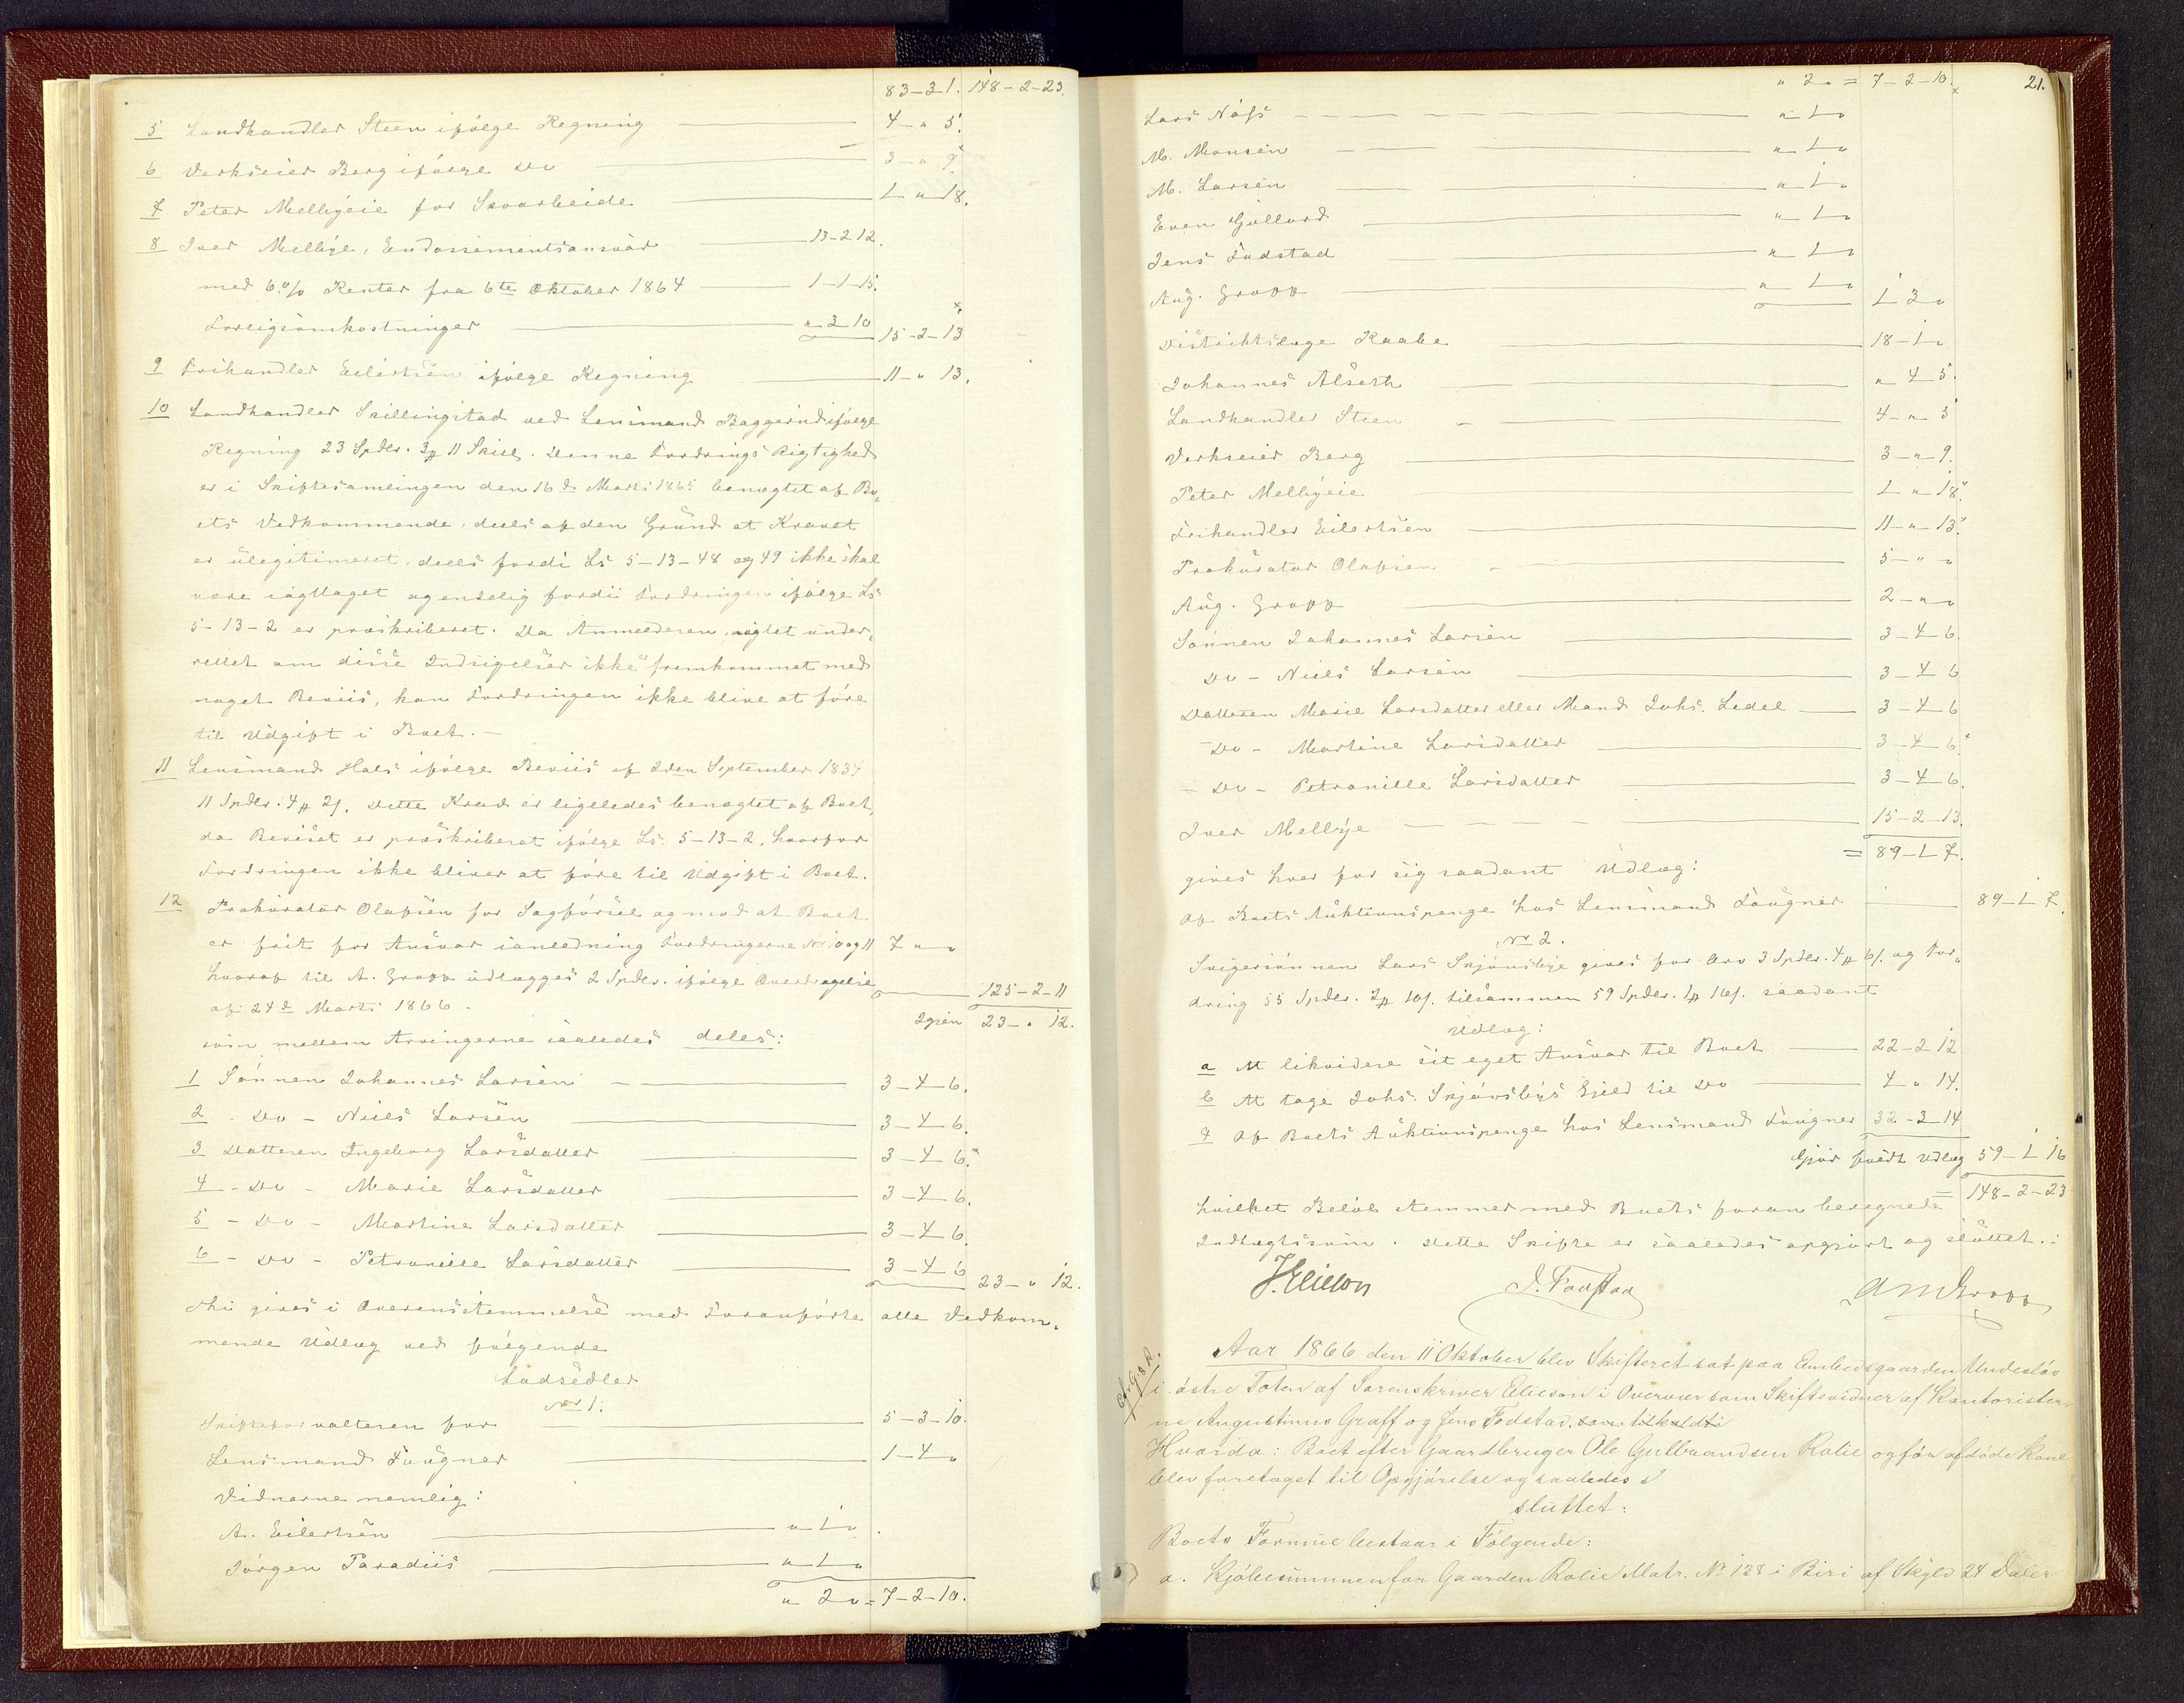 83-3 1. 148-2-23.
5 Landhandler Steen ifølge Regning 4 - " 5.
6 Verkseier Berg ifølge Do 3 - " 9.
7 Peter Melbyeie for Skoarbeide 1 " 18.
8 Iver Melbye, Endossementsansvar 13-2 12.
med 6 % Renter fra 6te Oktober 1864 1-1-15.
Foreigsomkostninger " 3 10 15-2-13
9 Frihandler Eilertsen ifølge Regning 11 - " 13.
10 Landhandler Skillingstad ved Lensmand Baggerud ifølge
Regning 23 Spdlr. 3 # 11 Skill. Denne Fordrings Rigtighed
er i Skiftesamlingen den 16de Marts 1865 benægtet af Bo-
ets Vedkommende, deels af den Grund at Kravet
er ulegitimeret, deels fordi Ls 5-13-48 og 49 ikke skal
være iagttaget og endelig fordi Fordringen ifølge Ls
5-13-2 er præskriberet. Da Anmelderen, uagtet under-
rettet om disse Indsigelser ikke er fremkommet med
noget Beviis, kan Fordringen ikke blive at føre
til Udgift i Boet. -
11 Lensmand Hals ifølge Beviis af 2den September 1834
11 Spdlr. 4 # 2 s. Dette Krav er ligeledes benægtet af Boet,
da Beviset er præskriberet ifølge Ls. 5-13-2, hvorfor
Fordringen ikke bliver at føre til Udgift i Boet.
12 Prokurator Olafsen for Sagførsel og mod at Boet
er frit for Ansvar ianledning Fordringerne No 10 og 11 7 " "
hvoraf til A. Graff udlægges 2 Spdlr. ifølge Overdragelse
af 24de Marts 1866. 125-2-11
Igjen 23 - " 12.
som mellem Arvingerne saaledes deles:
1 Sønnen Johannes Larsen 3-4-6.
2 - Do - Niels Larsen 3-4-6.
3 Datteren Ingeborg Larsdatter 3-4-6.
4 - Do - Marie Larsdatter 3-4-6.
5 - Do - Martine Larsdatter 3-4-6.
6 - Do - Petronille Larsdatter 3-4-6 23 - " 12.
Thi gives i Overensstemmelse med Foranførte alle Vedkom-
mende Udlæg ved følgende
Lodsedler
No 1.
Skifteforvalteren for 5-3-10.
Lensmand Faugner 1-4 "
Vidnerne nemlig:
A. Eilertsen " 1 "
Jørgen Paradiis " 1 "
" 2 " = 7-2-10.
" 2 " = 7-2-10.
21.
Lars Næss " 1 "
M. Monsen " 1 "
M. Larsen " 1 "
Even Gjøllord " 1 "
Jens Fodstad " 1 "
Aug. Graff " 1 " 1 3 "
Distriktslæge Raabe 18-1 "
Johannes Alseth " 4 5.
Landhandler Steen 4 - " 5
Verkseier Berg 3 - " 9.
Peter Melbyeie 1 " 18.
Frihandler Eilertsen 11 - " - 13.
Prokurator Olafsen 5 - " "
Aug. Graff 2 - " "
Sønnen Johannes Larsen 3-4-6.
Do - Niels Larsen 3-4 6
Datteren Marie Larsdatter eller Mand Johs. Ledel 3-4-6
- Do - Martine Larsdatter 3-4-6.
- Do - Petronille Larsdatter 3-4-6.
Iver Melbye 15-2-13.
= 89-1 7.
gives hver for sig saadant Udlæg:
Af Boets Auktionspenge hos Lensmand Faugner 89-1 7.
No 2.
Svigersønnen Lars Skjønsbye gives for Arv 3 Spdlr. 4 # 6 s. og For-
dring 55 Spdlr. 2 # 10 s. tilsammen 59 Spdlr. 1 # 16 s. saadant
Udlæg:
a At likvidere sit eget Ansvar til Boet 22-2 12
b At tage Johs. Skjønsbys Gjeld til Do 4 " 14.
c Af Boets Auktionspenge hos Lensmand Faugner 32-3-14
Gjør fuldt Udlæg 59-1 16
= 148-2-23
hvilket Beløb stemmer med Boets foran beregnede
Indtægtssum. Dette Skifte er saaledes opgjort og sluttet.:
J. Elieson J. Fodstad Aug Graff
Aar 1866 den 11 Oktober blev Skifteret sat paa Embedsgaarden
i østre Toten af Sorenskriver Elieson i Overvær som Skiftevidner af Kontorister-
ne Augustinus Graff og Jens Fodstad. som tilkaldt
Hvorda: Boet efter Gaardbruger Ole Gulbrandsen Rolie og før afdøde Kone
blev foretaget til Opgjørelse og saaledes
sluttet:
Boets Formue bestaar i Følgende:
a. Kjøbesummen for Gaarden Rolie Matr. No 128 i Biri af Skyld 24 Daler